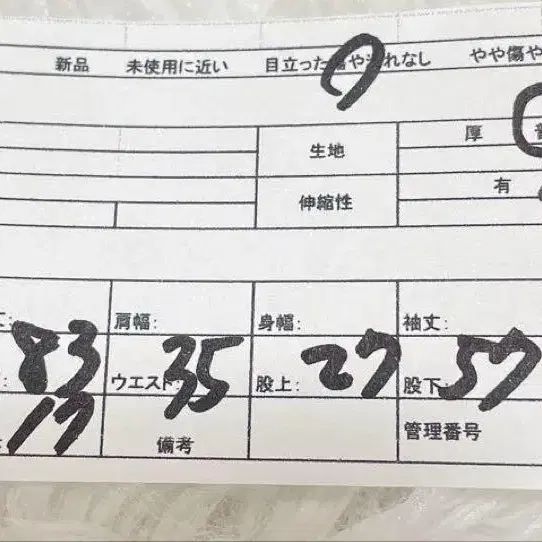 新品 未使用に近い 目立った傷や汚れなし やや傷や
生地 厚
伸縮性 有
肩幅: 身幅: 袖丈:
83 ウエスト: 35 股上: 27 股下: 57
17 備考 管理番号